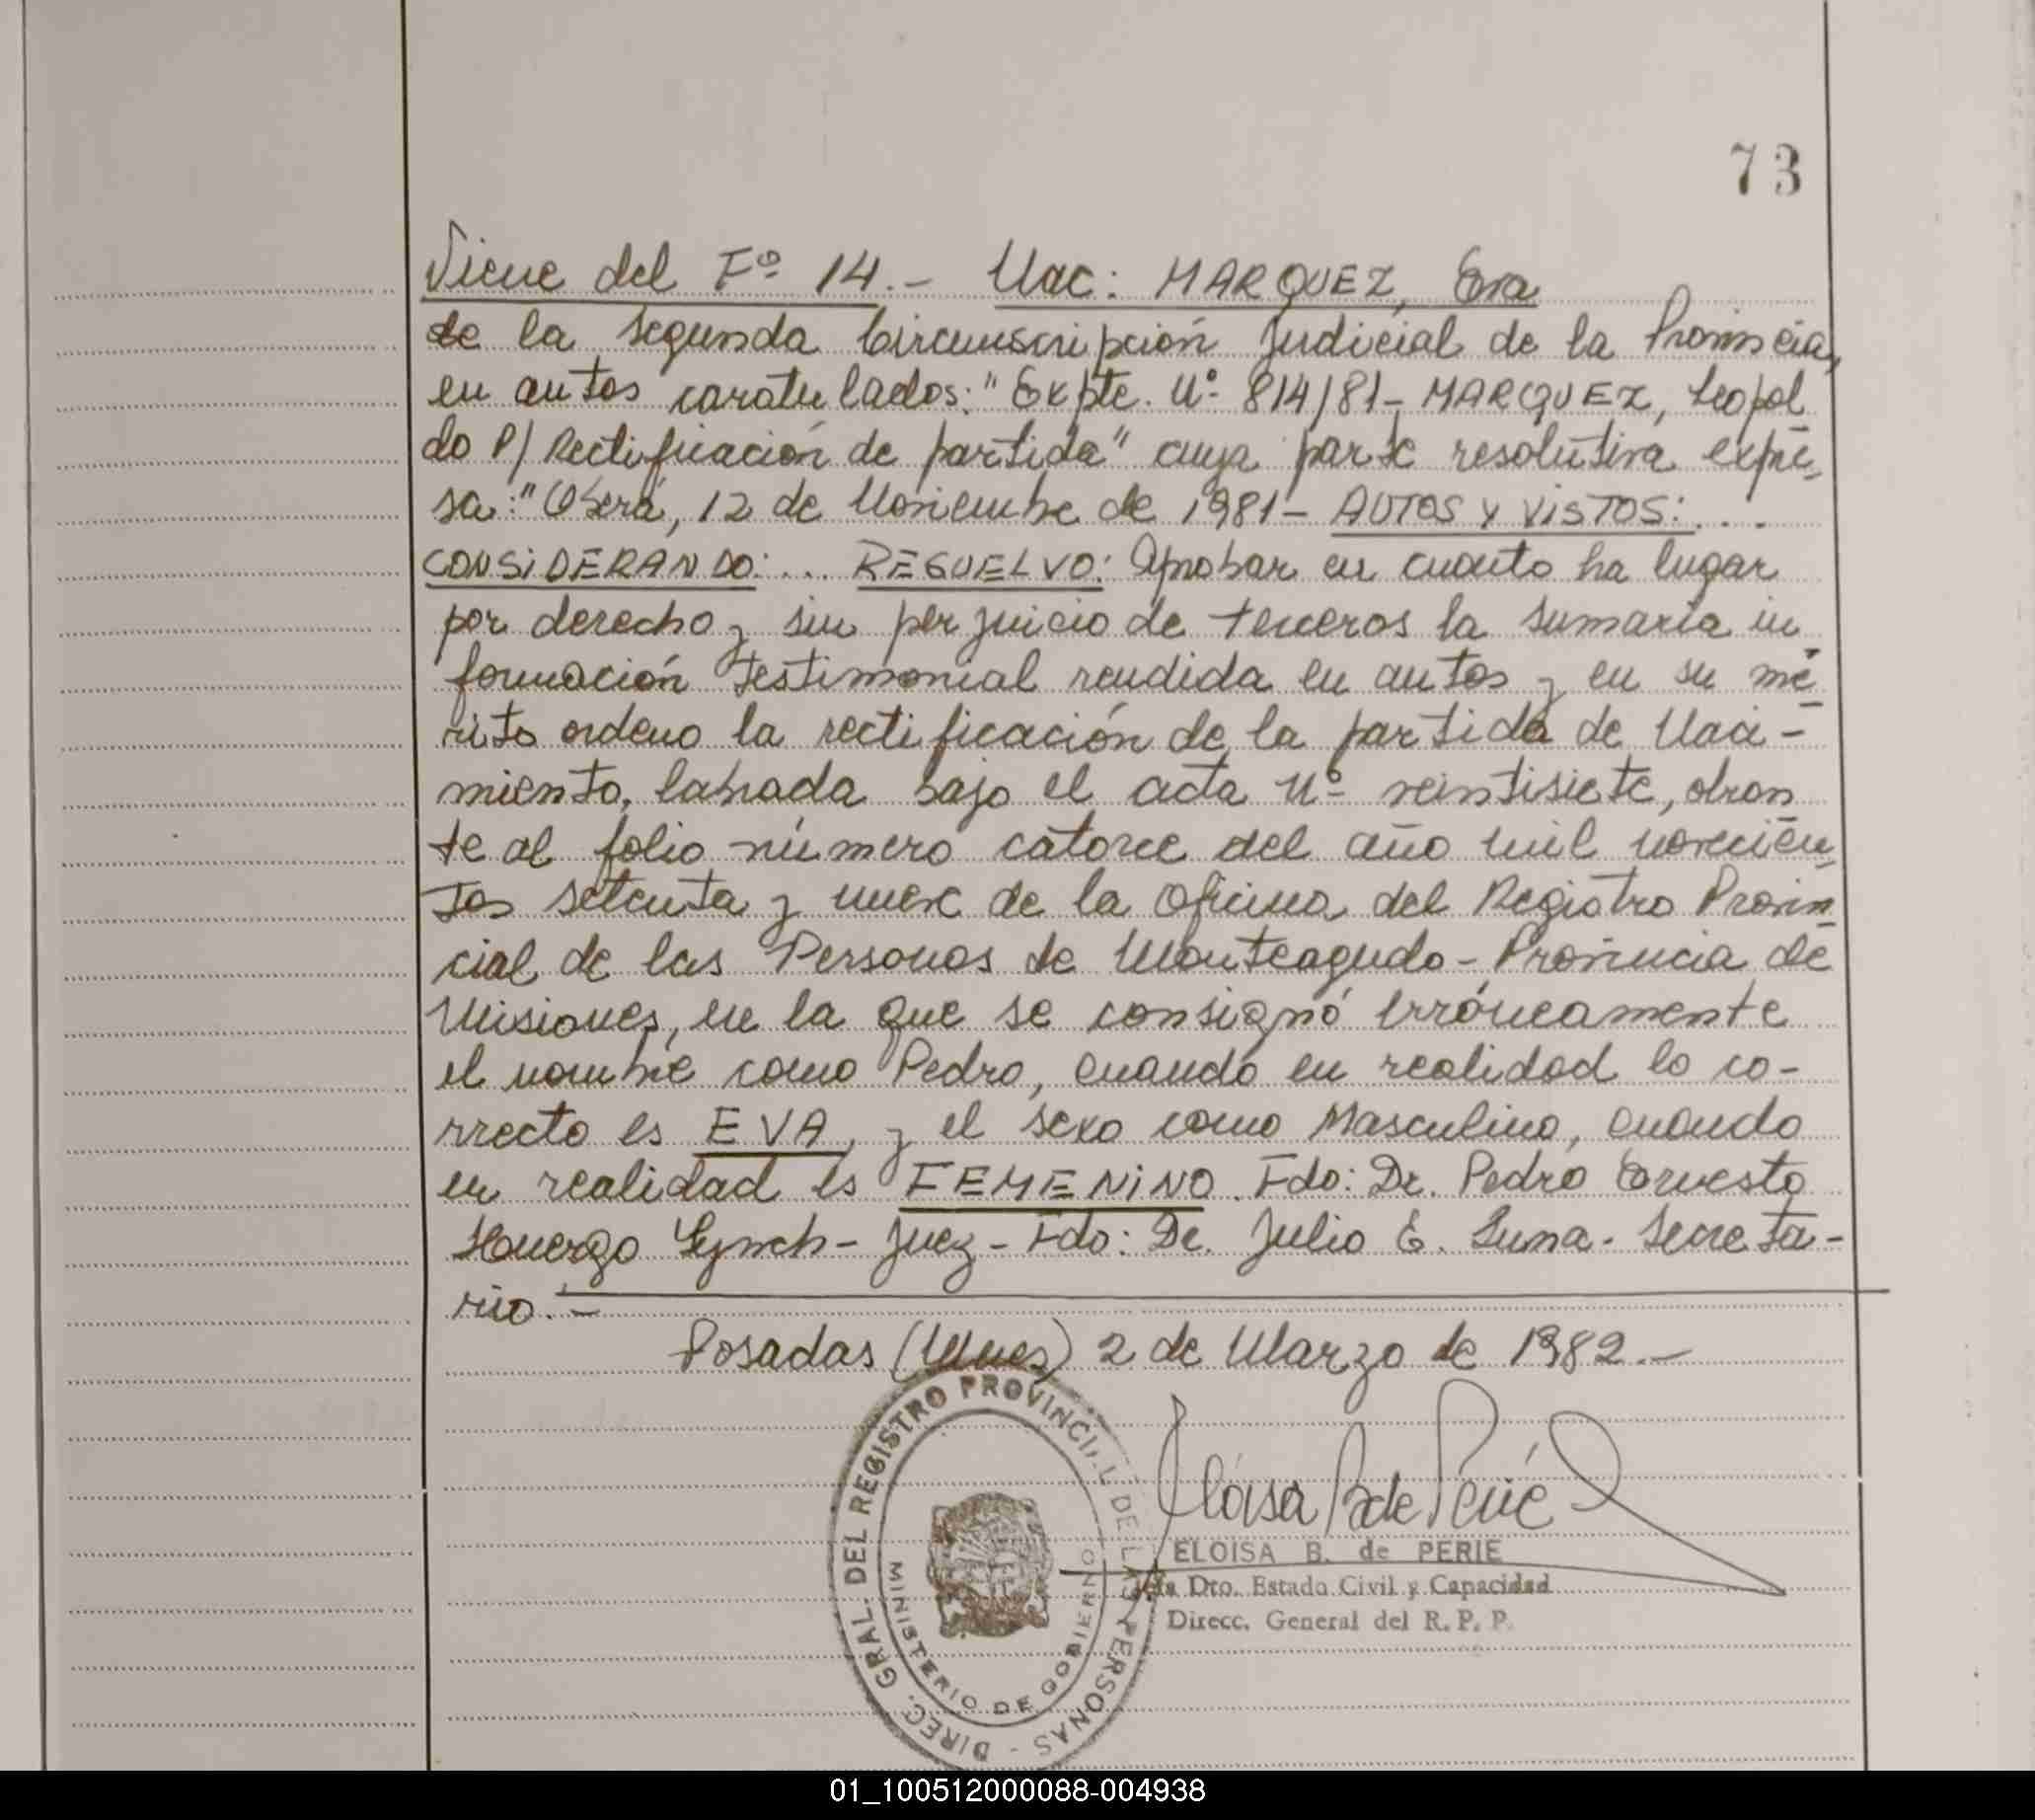 73
Viene del Fº 14.- Nac: MARQUEZ, Eva
de la Segunda Circunscripción Judicial de la Provincia,
en autos caratulados: "Expte. Nº 814/81- MARQUEZ, Leopol
do P/ Rectificación de partida" cuya parte resolutiva expre
sa: "Oberá, 12 de Noviembre de 1981- AUTOS Y VISTOS: ....
CONSIDERANDO: ... RESUELVO: Aprobar en cuanto ha lugar
por derecho y sin perjuicio de terceros la sumaria in
formación testimonial rendida en autos y en su mé
rito ordeno la rectificación de la partida de Naci-
miento, labrada bajo el acta Nº veintisiete, obran
te al folio número catorce del año mil novecien
tos setenta y nueve de la Oficina del Registro Provin
cial de las Personas de Monteagudo - Provincia de
Misiones, en la que se consignó erróneamente
el nombre como Pedro, cuando en realidad lo co-
rrecto es EVA, y el sexo como Masculino, cuando
en realidad es FEMENINO. Fdo: Dr. Pedro Ernesto
Huergo Lynch - Juez - Fdo: Dr. Julio E. Luna - Secreta-
rio.-
Posadas (Mnes) 2 de Marzo de 1982.-
DIREC. GRAL. DEL REGISTRO PROVINCIAL DE LAS PERSONAS -
MINISTERIO DE GOBIERNO
Eloisa B de Perié
ELOISA B. de PERIE
Dto. Estado Civil y Capacidad
Direcc. General del R. P. P.
01_100512000088-004938